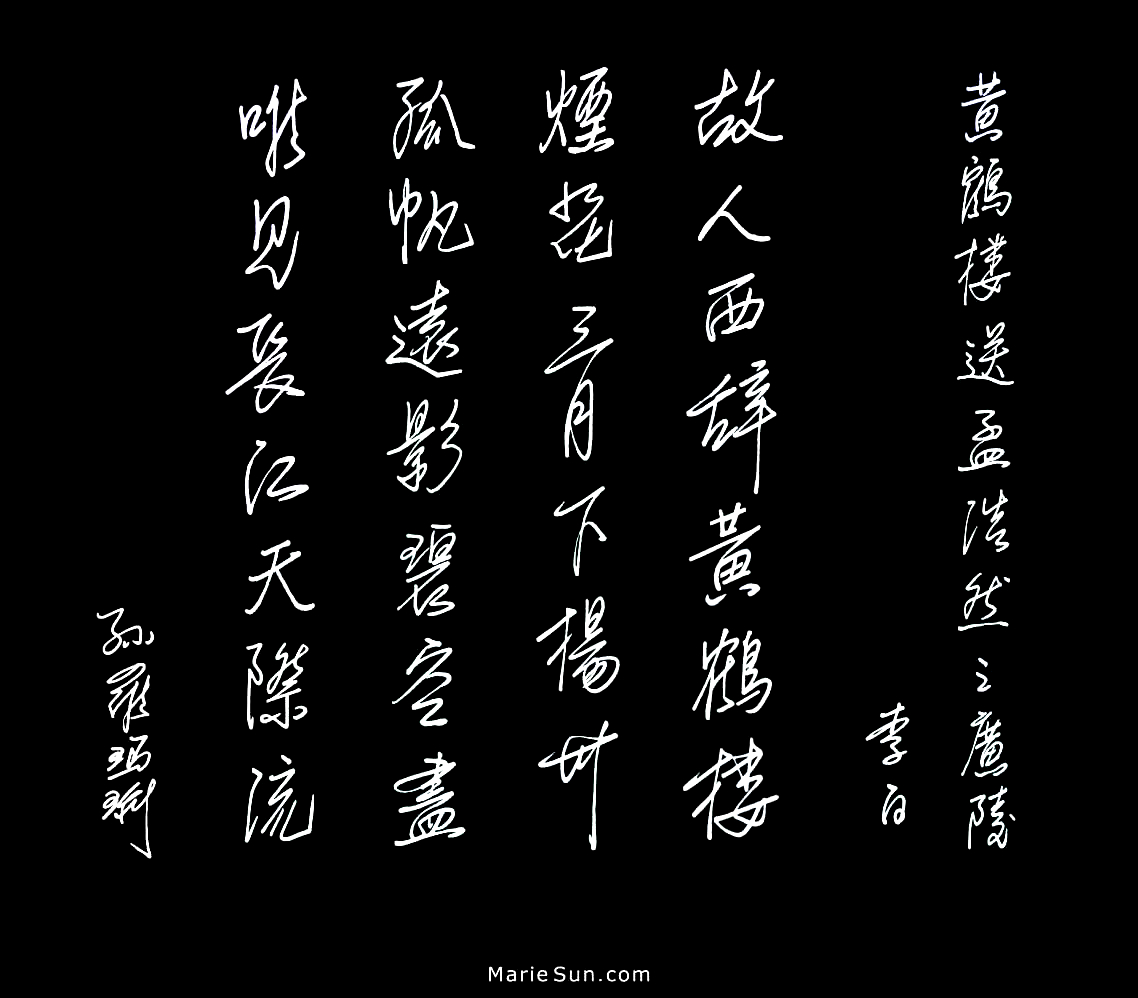 黄鶴楼送孟浩然之廣陵
李白
故人西辞黄鶴楼
煙花三月下楊州
孤帆遠影碧空盡
唯見長江天際流
孫羅瑪琍
MarieSun.com